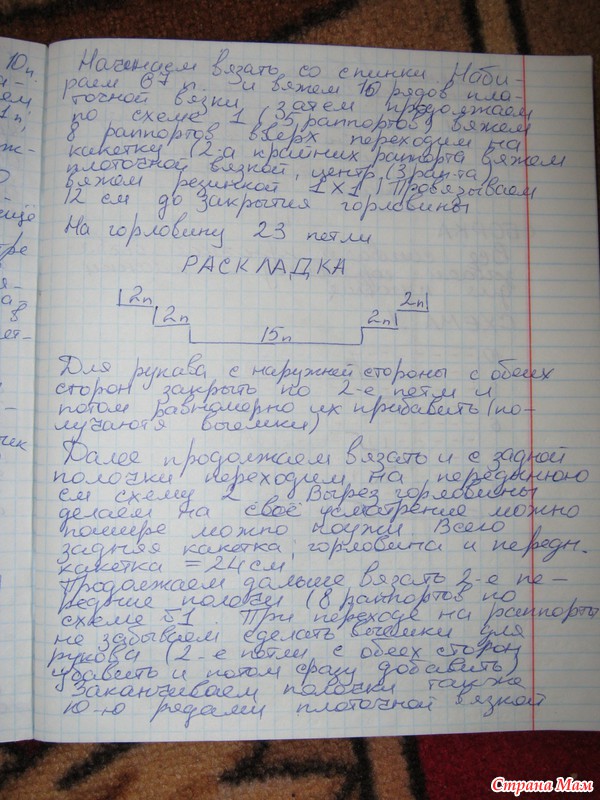 10п.
Начинаем вязать со спинки. Наби-
раем 67 п. и вяжем 10 рядов пла-
точной вязки, затем продолжаем
по схеме 1 (5 раппортов) вяжем
8 раппортов вверх переходим на
какетку (2-а крайних раппорта вяжем
плоточной вязкой, центр (3 рап-та)
вяжем резинкой 1х1) Провязываем
12 см до закрытия горловины
На горловину 23 петли
РАСКЛАДКА
2п 2п 15п 2п 2п
Для рукава с наружней стороны с обеих
сторон закрыть по 2-е петли и
потом равномерно их прибавить (по-
лучаются выемки)
Далее продолжаем вязать и с задней
полочки переходим на переднюю
см схему 2. Вырез горловины
делаем на своё усмотрение можно
пошире можно поужи. Всего
задняя какетка, горловина и передн.
какетка = 24 см
Продолжаем дальше вязать 2-е пе-
редние полочки (8 раппортов по
схеме 1. При переходе на раппорты
не забываем сделать выемки для
рукова (2-е петли с обеих сторон
убавить и потом сразу добавить)
Заканчиваем полочки также
10-ю рядами плоточной вязкой
Страна Мам